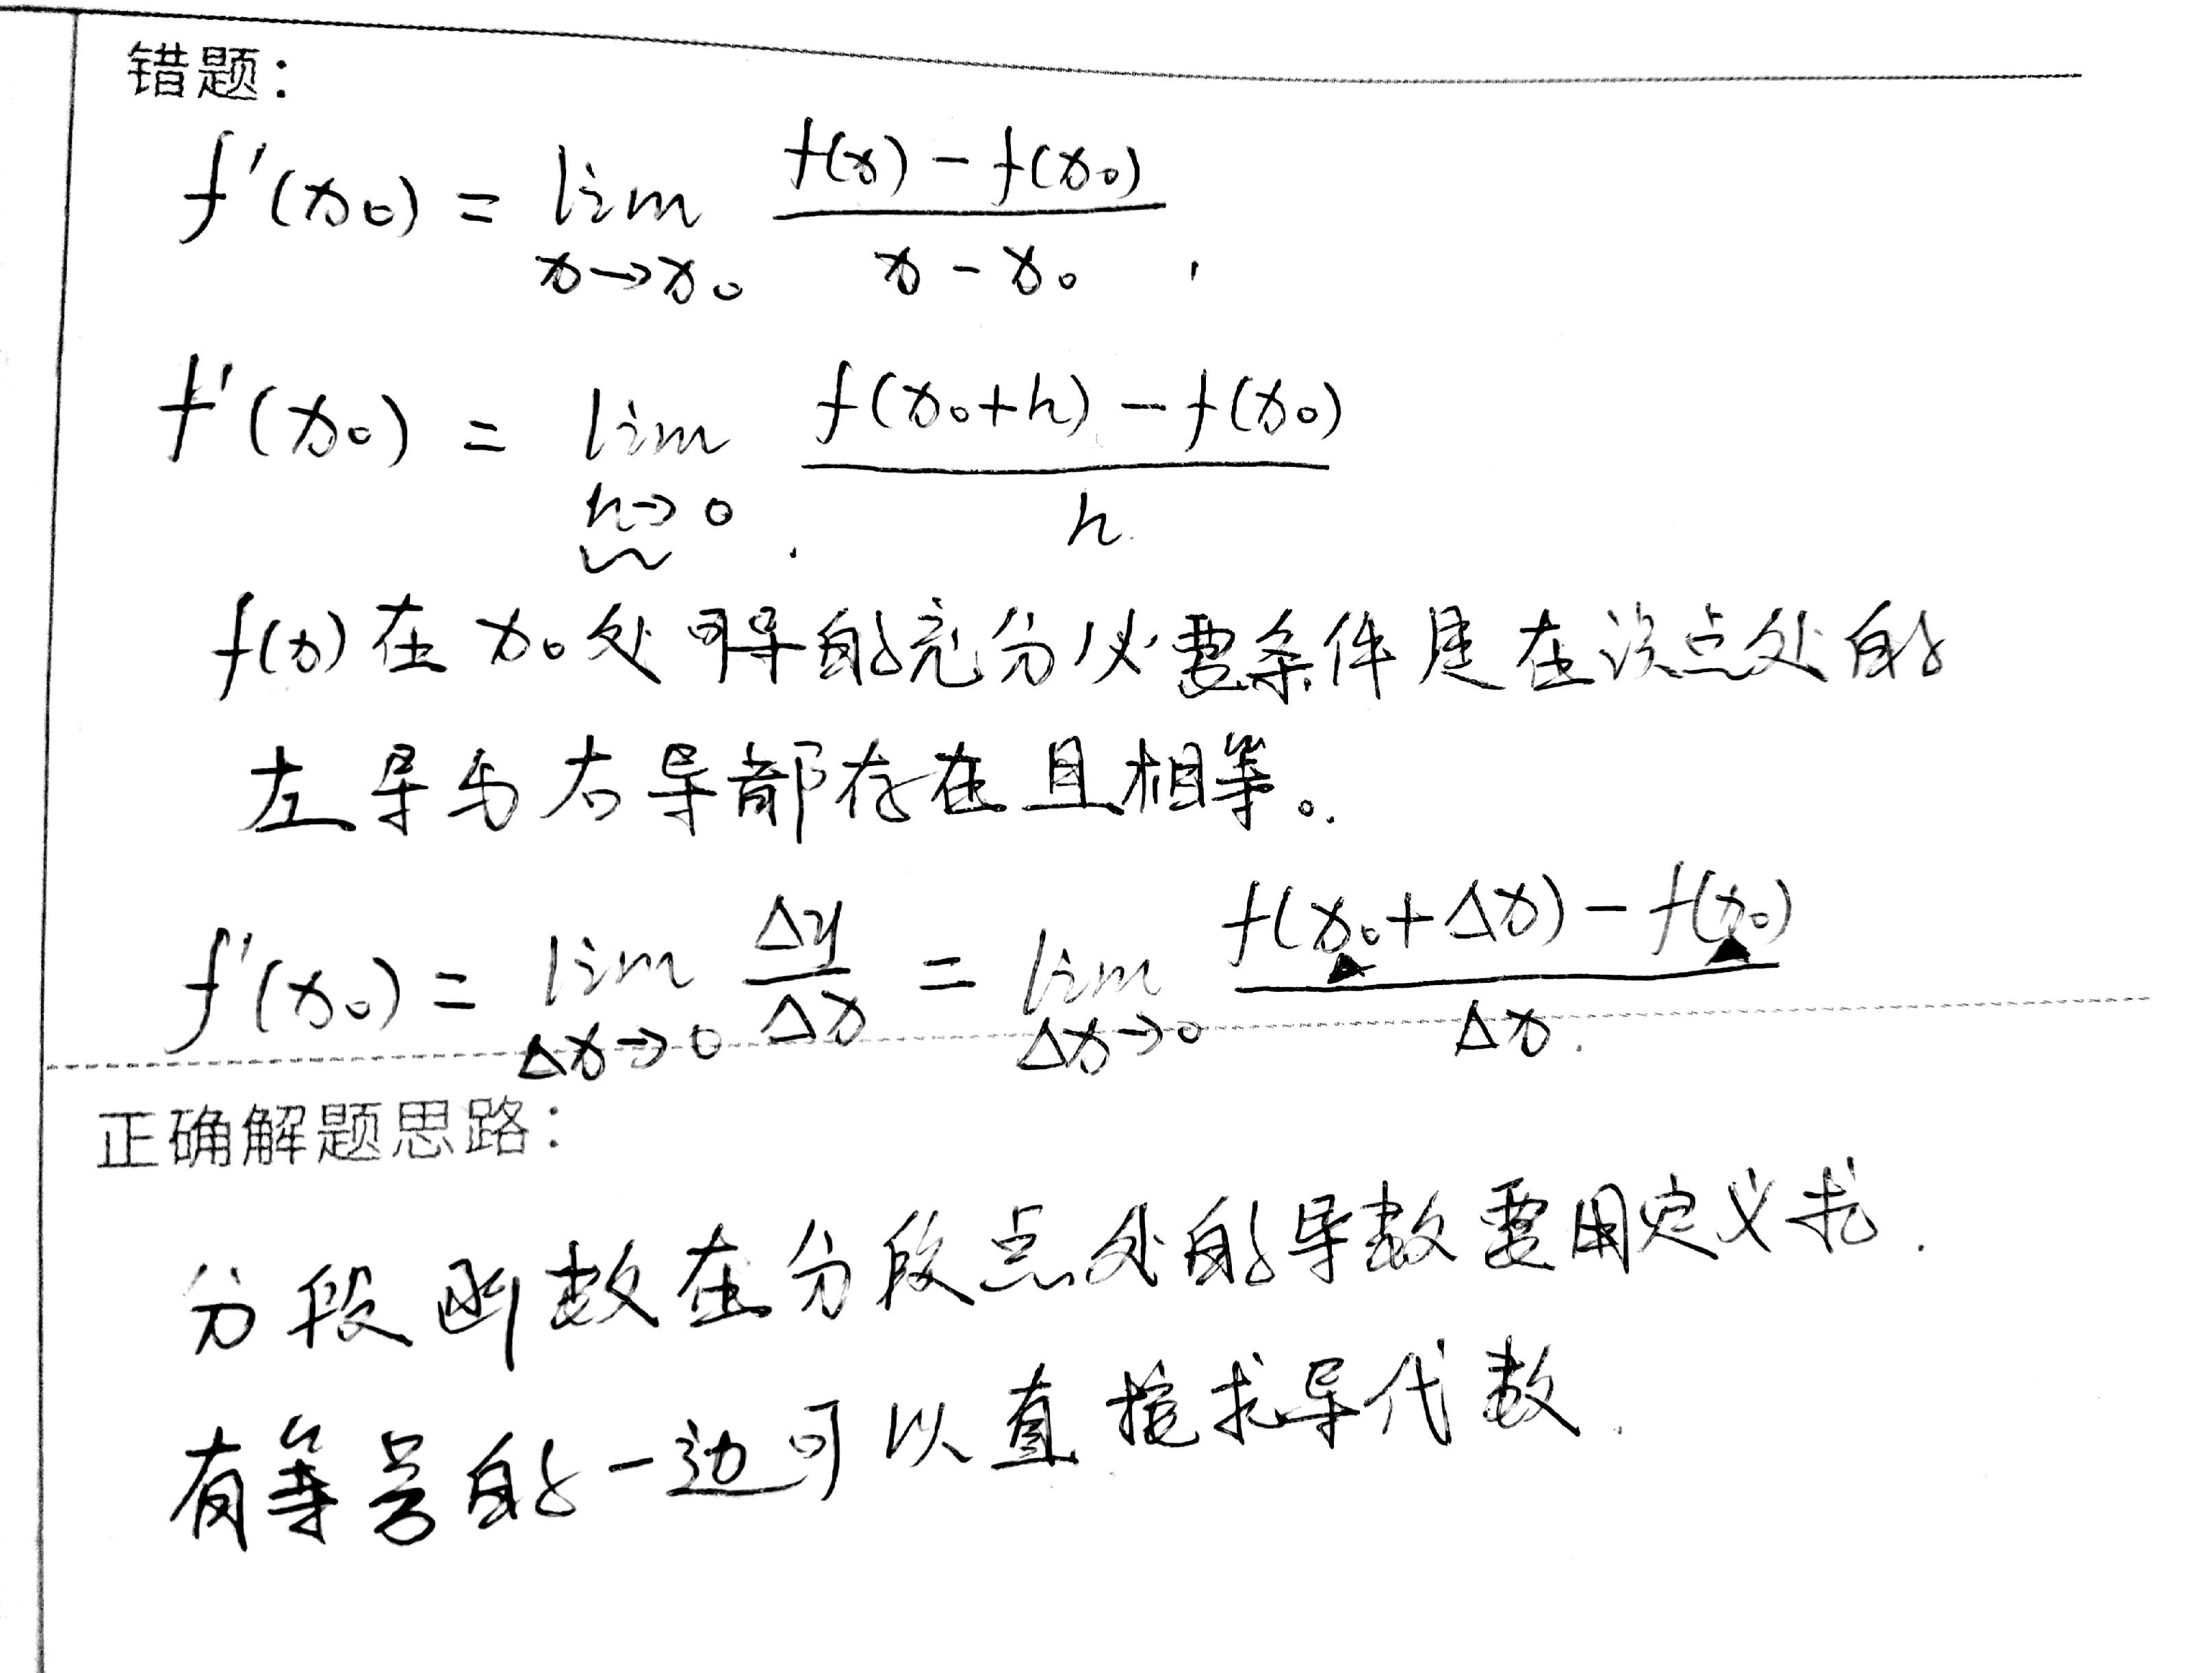 错题：
f'(x₀) = lim_{x→x₀} \frac{f(x) - f(x₀)}{x - x₀} ,
f'(x₀) = lim_{h→0} \frac{f(x₀+h) - f(x₀)}{h} .
f(x) 在 x₀ 处可导的充分必要条件是在该点处的
左导与右导都存在且相等。
f'(x₀) = lim_{Δx→0} \frac{Δy}{Δx} = lim_{Δx→0} \frac{f(x₀+Δx) - f(x₀)}{Δx} .
正确解题思路：
分段函数在分段点处的导数要用定义求.
有等号的一边可以直接求导代数.